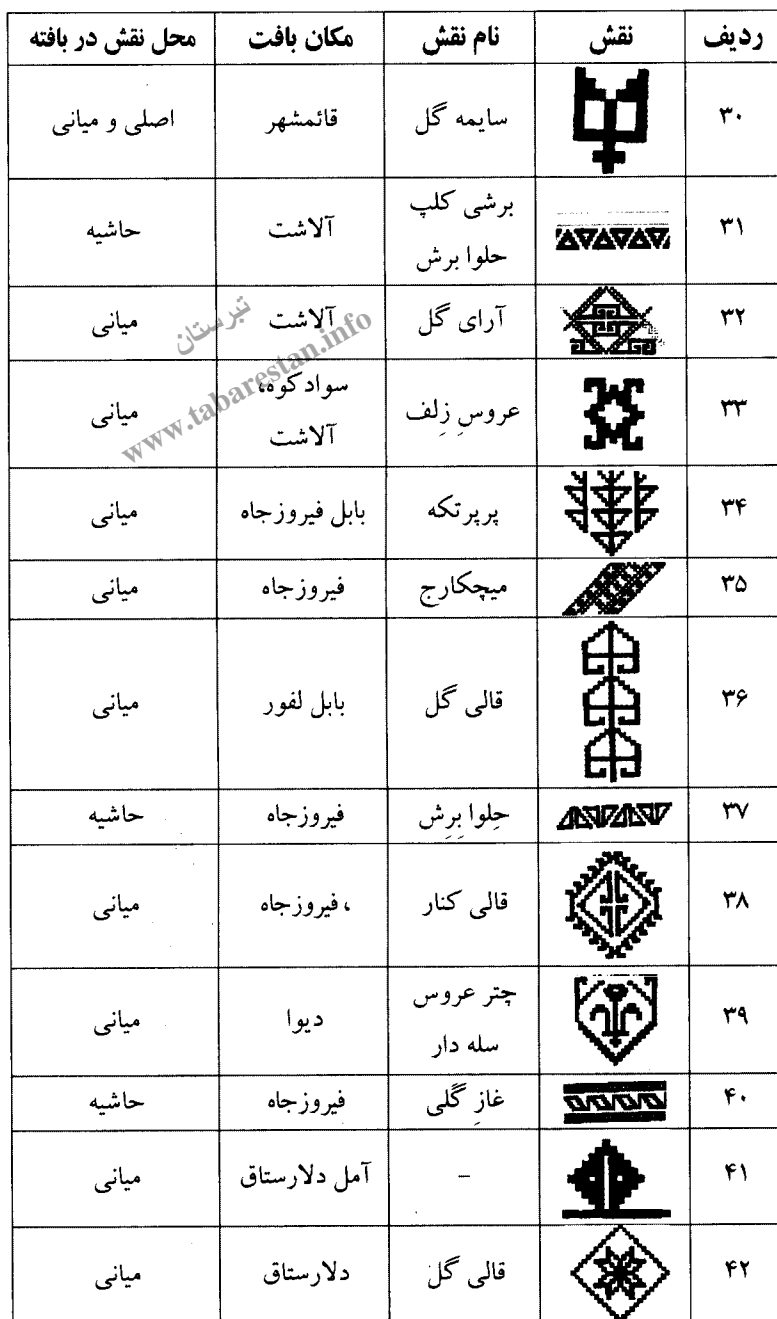 ردیف نقش نام نقش مکان بافت محل نقش در بافته
۳۰ سایمه گل قائمشهر اصلی و میانی
۳۱ برشی کلپ حلوا برش آلاشت حاشیه
۳۲ آرای گل آلاشت میانی
۳۳ عروسِ زِلف سوادکوه، آلاشت میانی
۳۴ پرپرتکه بابل فیروزجاه میانی
۳۵ میچکارج فیروزجاه میانی
۳۶ قالی گل بابل لفور میانی
۳۷ حِلوا بِرِش فیروزجاه حاشیه
۳۸ قالی کنار ، فیروزجاه میانی
۳۹ چتر عروس سله دار دیوا میانی
۴۰ غازِ گَلی فیروزجاه حاشیه
۴۱ – آمل دلارستاق میانی
۴۲ قالی گل دلارستاق میانی
تبرستان
www.tabarestan.info